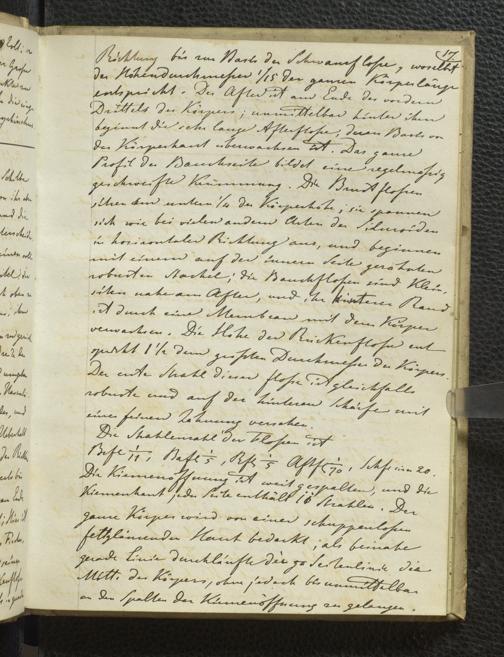 17
Richtung bis zur Basis der Schwanzflosse, woselbst
der Höhendurchmesser 1/15 der ganzen Körperlänge
entspricht. Der After ist am Ende des vordern
Drittels des Körpers; unmittelbar hinter ihm
beginnt die sehr lange Afterflosse, deren Basis von
der Körperhaut überwachsen ist. Das ganze
Profil der Bauchseite bildet eine regelmäsig
geschweifte Krümmung. Die Brustflossen
sitzen am untern 1/4 der Körperhöhe; sie spannen
sich wie bei vielen andern Arten der Siluroiden
in horizontaler Richtung aus, und beginnen
mit einem auf der innern Seite gezähnten
robusten Stachel; die Bauchflossen sind klein,
sitzen nahe am After, und ihr hinterer Rand
ist durch eine Membran mit dem Körper
verwachsen. Die Höhe der Rückenflosse ent
spricht 1/2 dem grösten Durchmesser des Körpers.
Der erste Strahl dieser flosse ist gleichfalls
robuste und auf der hinteren Schärfe mit
einer feinen Zahnung versehen.
Die Strahlenzahl der Flossen ist
Brfl 1/11, Bafl 1/5, Rfl 1/5 Aftfl 1/70, Schfl 20.
Die Kiemenöffnung ist weit gespalten, und die
Kiemenhaut jeder Seite enthält 10 Strahlen. Der
ganze Körper wird von einer schuppenlosen
fettglänzenden Haut bedeckt; als beinahe
gerade Linie durchläuft die Seitenlinie die
Mitte des Körpers, ohne jedoch bis unmittelbar
an die Spalten der Kiemenöffnung zu gelangen.